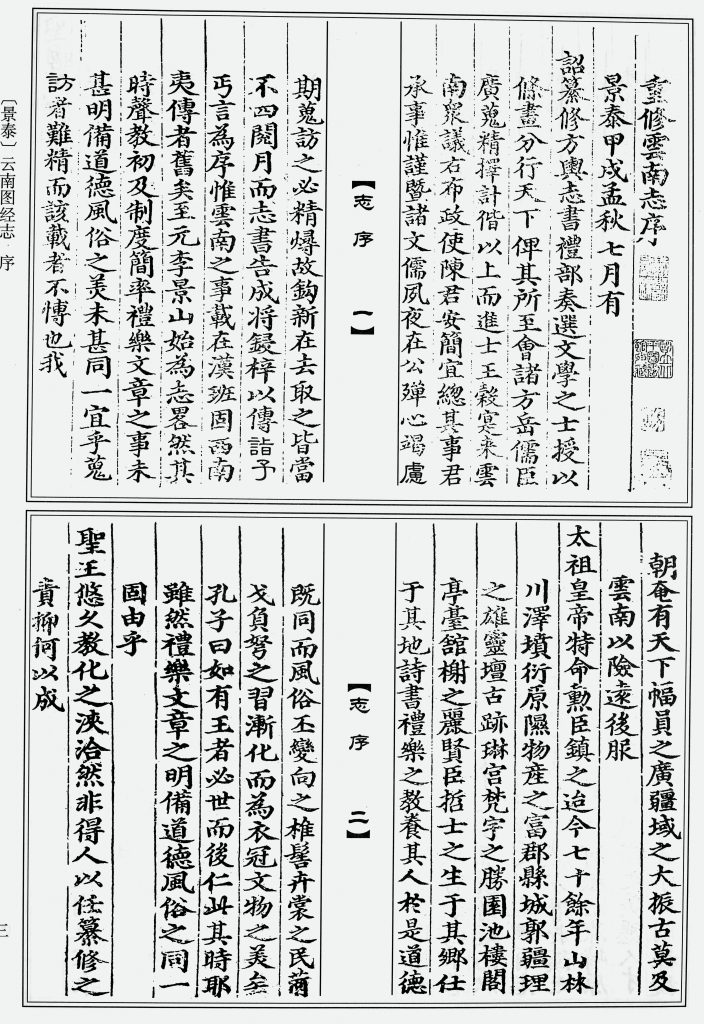 重修雲南志序
景泰甲戌孟秋七月有
詔纂修方輿志書禮部奏選文學之士授以
條畫分行天下俾其所至會諸方岳儒臣
廣蒐精擇計偕以上而進士王穀寔来雲
南衆議右布政使陳君安簡宜總其事君
承事惟謹暨諸文儒夙夜在公殫心竭慮
【志序 一】
期蒐訪之必精燖故鈎新在去取之皆當
不四閱月而志書告成将鋟梓以傳詣予
丐言為序惟雲南之事載在漢班固西南
夷傳者舊矣至元李景山始為志畧然其
時聲教初及制度簡率禮樂文章之事未
甚明備道德風俗之美未甚同一宜乎蒐
訪者難精而該載者不愽也我
朝奄有天下幅員之廣疆域之大振古莫及
雲南以險遠後服
太祖皇帝特命勲臣鎮之迨今七十餘年山林
川澤墳衍原隰物産之富郡縣城郭疆理
之雄靈壇古跡琳宫梵宇之勝園池樓閣
亭臺舘榭之麗賢臣哲士之生于其郷仕
于其地詩書禮樂之教養其人於是道德
【志序 二】
既同而風俗丕變向之椎髻卉裳之民
戈負弩之習漸化而為衣冠文物之美矣
孔子曰如有王者必世而後仁此其時耶
雖然禮樂文章之明備道德風俗之同一
固由乎
聖王悠久教化之浹洽然非得人以任纂修之
責抑何以成
〔景泰〕云南图经志 序
三